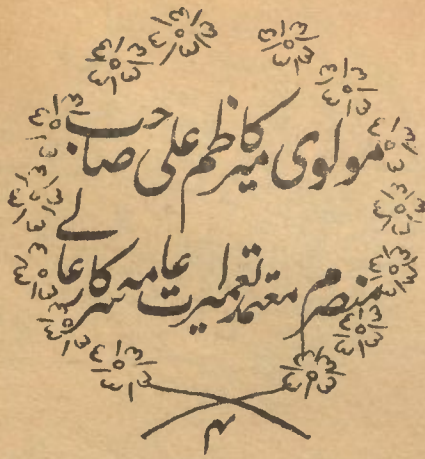 مولوی میر کاظم علی صاحب
منصرم معتمد تعمیرات عامہ سرکار عالے